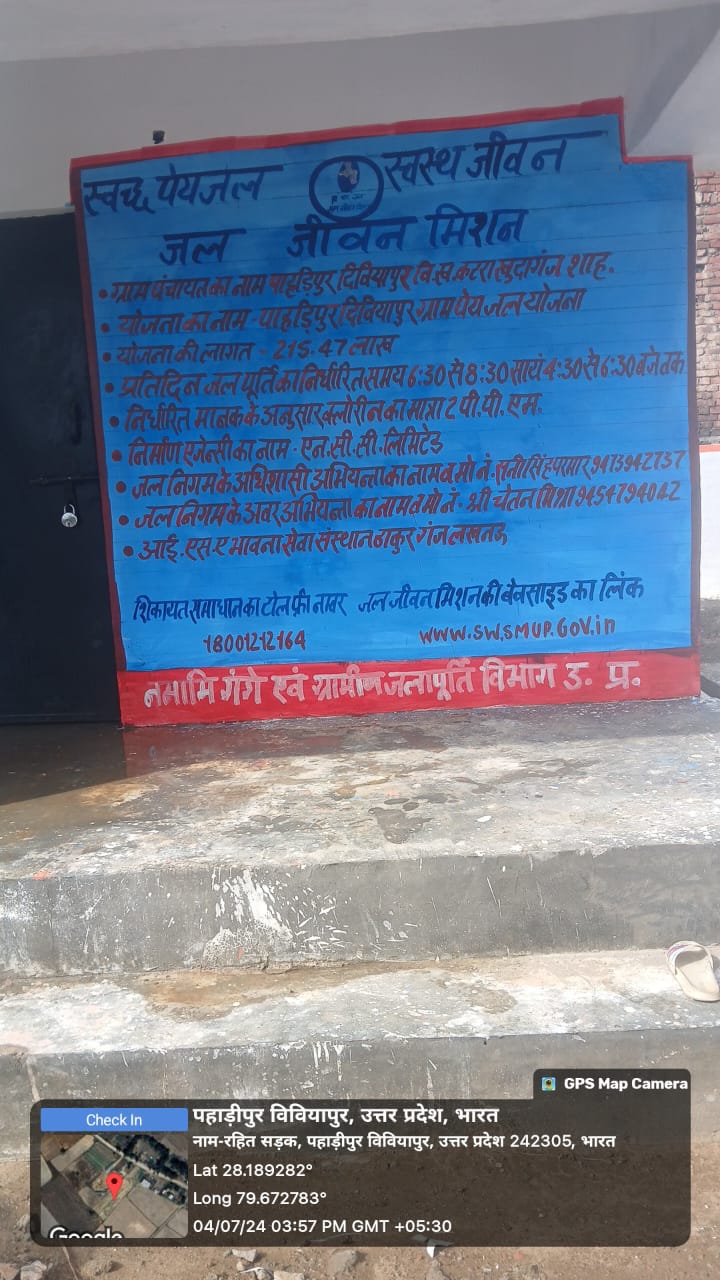 स्वच्छ पेयजल स्वस्थ जीवन
जल जीवन मिशन
• ग्राम पंचायत का नाम पाहाड़िपुर विवियापुर वि.ख. कटरा खुदागंज शाह.
• योजना का नाम - पाहाड़िपुर विवियापुर ग्राम पेय जल योजना
• योजना की लागत - 215.47 लाख
• प्रतिदिन जल पूर्ति का निर्धारित समय 6:30 से 8:30 सायं 4:30 से 6:30 बजे तक
• निर्धारित मानक के अनुसार क्लोरीन का मात्रा 2 पी.पी. एम.
• निर्माण एजेन्सी का नाम - एन.सी.सी. लिमिटेड
• जल निगम के अधिशासी अभियन्ता का नाम व मो नं. सिंह परमार 9473942737
• जल निगम के अवर अभियन्ता का नाम व मो नं - श्री चेतन मिश्रा 9454794042
• आई. एस. ए भावना सेवा संस्थान ठाकुर गंज लखनऊ
शिकायत समाधान का टोल फ्री नम्बर जल जीवन मिशन की बेवसाइड का लिंक
18001212164 www.swsmup.gov.in
नमामि गंगे एवं ग्रामीण जलापूर्ति विभाग उ. प्र.
GPS Map Camera
Check In
पहाड़ीपुर विवियापुर, उत्तर प्रदेश, भारत
नाम-रहित सड़क, पहाड़ीपुर विवियापुर, उत्तर प्रदेश 242305, भारत
Lat 28.189282°
Long 79.672783°
04/07/24 03:57 PM GMT +05:30
Google